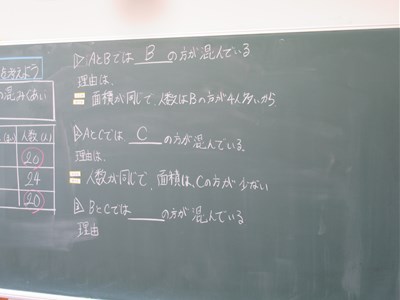 を考えよう
の混みぐあい
人数(人)
20
24
20
▷ AとBでは B の方が混んでいる
理由は、
面積が同じで、人数はBの方が4人多いから
▷ AとCでは C の方が混んでいる
理由は、
人数が同じで、面積は、Cの方が少ない
BとCでは の方が混んでいる
理由